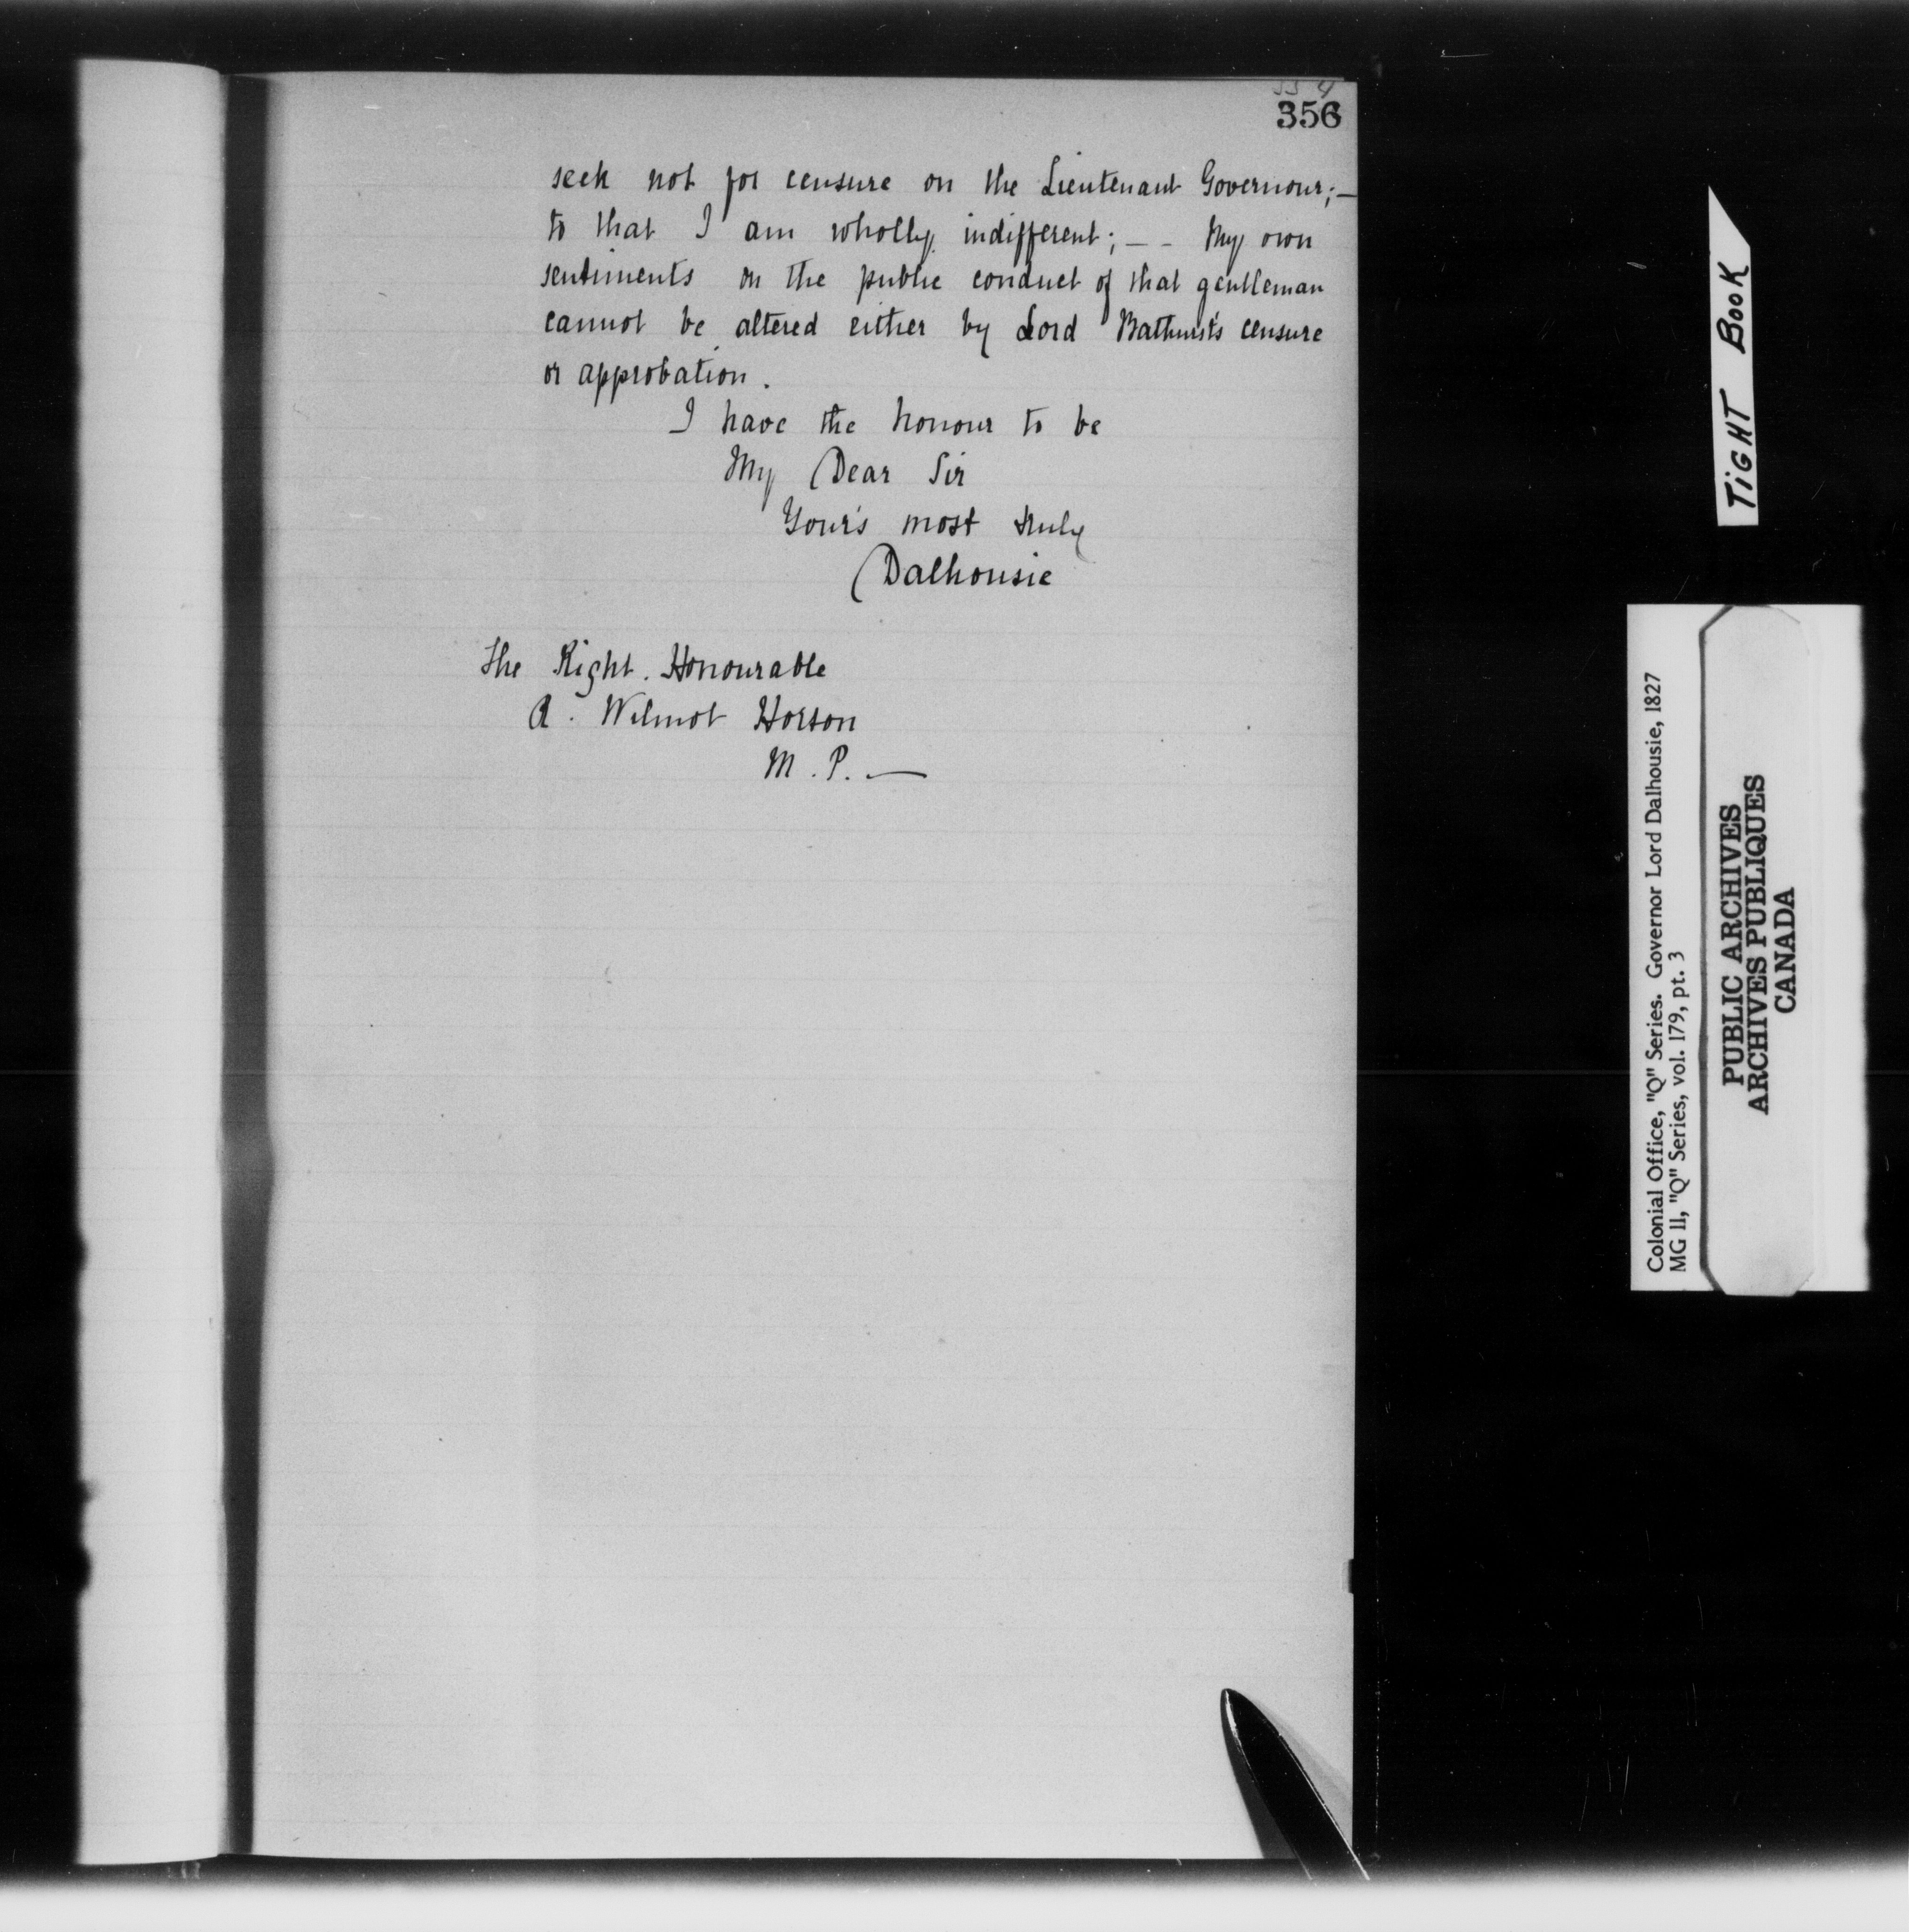 356
seek not for censure on the Lieutenant Governour;—
to that I am wholly indifferent; — - My own
sentiments on the public conduct of that gentleman
cannot be altered either by Lord Bathurst's censure
or approbation.
I have the honour to be
My Dear Sir
Your's most truly
Dalhousie
The Right. Honourable
R. Wilmot Horton
M.P. —
TIGHT BOOK
Colonial Office, "Q" Series. Governor Lord Dalhousie, 1827
MG 11, "Q" Series, vol. 179, pt. 3
PUBLIC ARCHIVES
ARCHIVES PUBLIQUES
CANADA